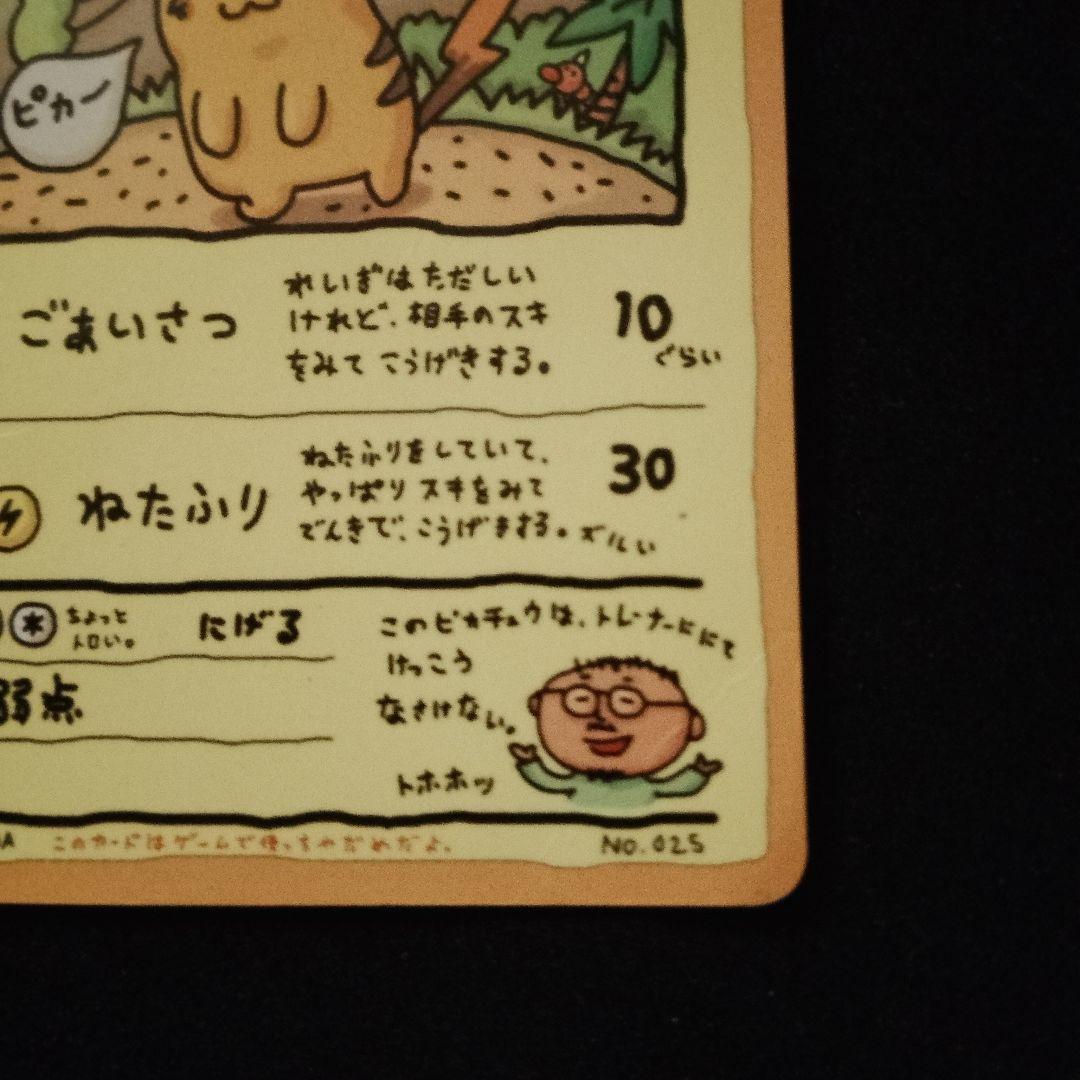 ピカー
ごあいさつ
れいぎはただしい
けれど、相手のスキ
をみて こうげきする。
10
ぐらい
ねたふり
ねたふりをしていて、
やっぱり スキをみて
でんきで、こうげきする。ズルい
30
ちょっと
トロい。
にげる
弱点
このピカチュウは、トレーナーににて
けっこう
なさけない。
トホホッ
このカードはゲームで使っちゃだめだよ。
NO.025